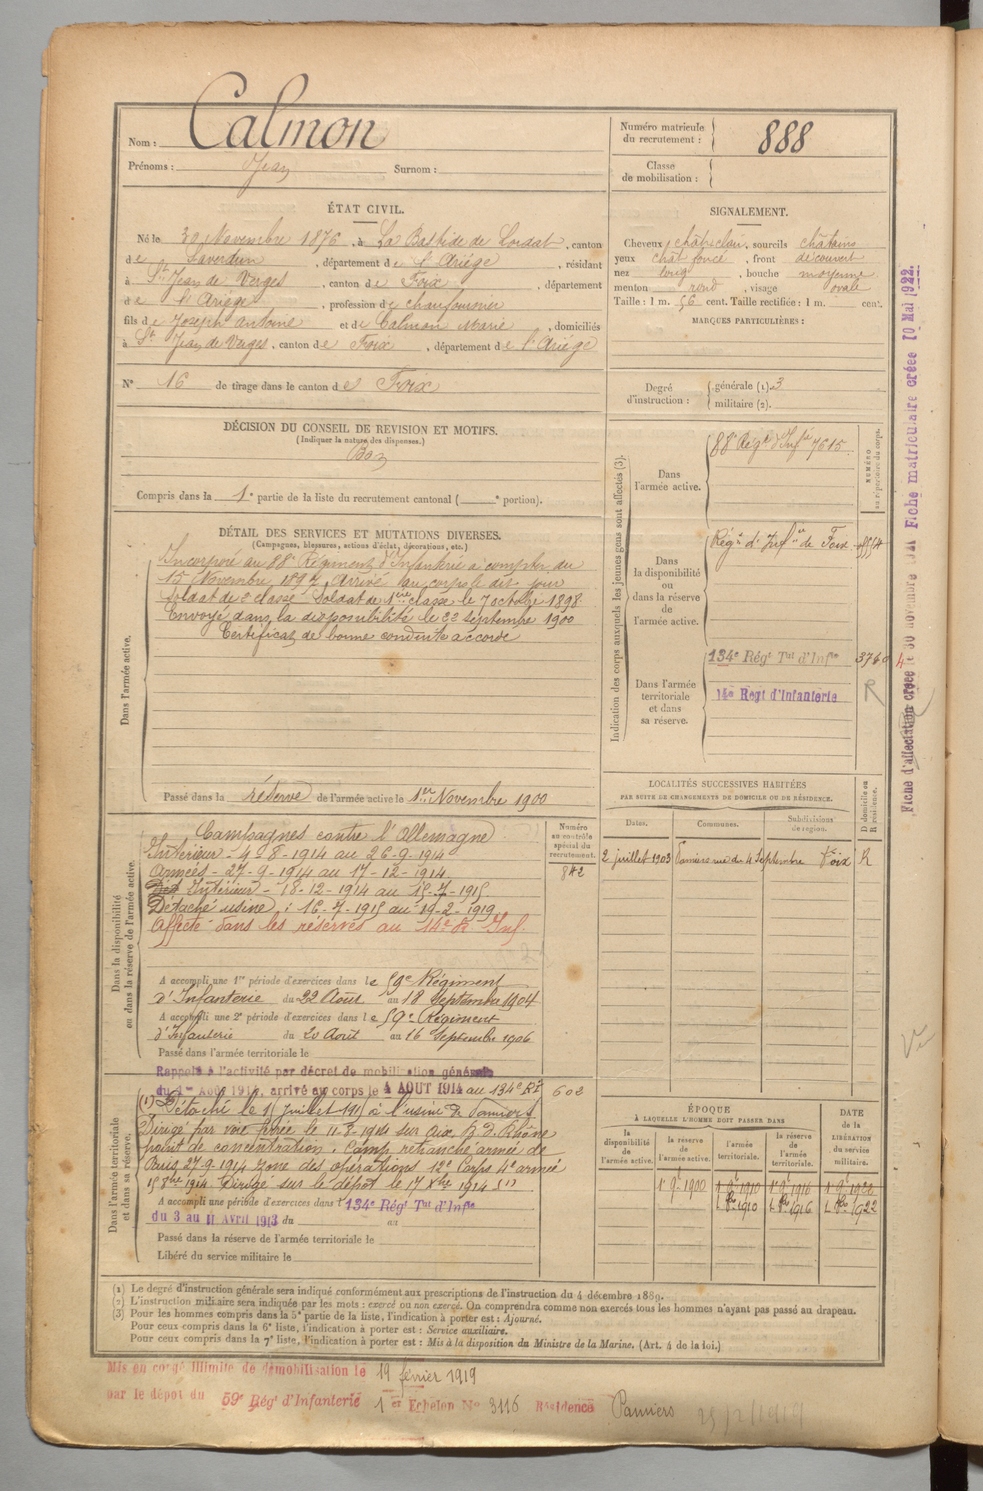 Nom : Calmon
Prénoms : Jean Surnom :
Numéro matricule du recrutement : 888
Classe de mobilisation :
ÉTAT CIVIL.
Né le 30 Novembre 1876, à La Bastide de Lordat, canton
de Saverdun, département de l'Ariége, résidant
à St Jean de Verges, canton de Foix, département
de l'Ariège, profession de chaufournier
fils de Joseph Antoine et de Calmon Marie, domiciliés
à St Jean de Verges, canton de Foix, département de l'Ariège
N° 16 de tirage dans le canton de Foix
SIGNALEMENT.
Cheveux chât. clair, sourcils châtains
yeux chat foncé, front découvert
nez long, bouche moyenne
menton rond, visage ovale
Taille : 1 m. 56 cent. Taille rectifiée : 1 m. cent.
MARQUES PARTICULIÈRES :
Degré d'instruction : générale (1). 3
militaire (2).
DÉCISION DU CONSEIL DE REVISION ET MOTIFS.
(Indiquer la nature des dispenses.)
Bon
Compris dans la 1e partie de la liste du recrutement cantonal ( e portion).
DÉTAIL DES SERVICES ET MUTATIONS DIVERSES.
(Campagnes, blessures, actions d'éclat, décorations, etc.)
Dans l'armée active.
Incorporé au 88e Régiment d'Infanterie à compter du
15 Novembre 1897. Arrivé au corps le dit jour
Soldat de 2e classe Soldat de 1ère classe le 7 octobre 1898
Envoyé dans la disponibilité le 22 Septembre 1900
Certificat de bonne conduite accordé
Passé dans la réserve de l'armée active le 1er Novembre 1900
Indication des corps auxquels les jeunes gens sont affectés (3).
NUMÉRO au répertoire du corps.
Dans l'armée active.
88e Régt d'Infie 7615
Dans la disponibilité ou dans la réserve de l'armée active.
Régt d'Infie de Foix
Dans l'armée territoriale et dans sa réserve.
134e Régt Tal d'Infie 3760
14e Régt d'Infanterie R
LOCALITÉS SUCCESSIVES HABITÉES
PAR SUITE DE CHANGEMENTS DE DOMICILE OU DE RÉSIDENCE.
Dates. Communes. Subdivisions de région. D domicile ou R résidence.
2 juillet 1903 Pamiers rue du 4 Septembre Foix R
Dans la disponibilité ou dans la réserve de l'armée active.
Numéro au contrôle spécial du recrutement.
842
Campagnes contre l'Allemagne
Intérieur - 4-8-1914 au 26-9-1914
Armées - 27-9-1914 au 17-12-1914
Intérieur - 18-12-1914 au 15-7-1915
Détaché usine : 16-7-1915 au 19-2-1919
Affecté dans les réserves au 14e Inf.
A accompli une 1re période d'exercices dans le 59e Régiment
d'Infanterie du 22 Août au 18 Septembre 1904
A accompli une 2e période d'exercices dans le 59e Régiment
d'Infanterie du 20 Août au 16 Septembre 1906
Passé dans l'armée territoriale le
Dans l'armée territoriale et dans sa réserve.
Rappelé à l'activité par décret de mobilisation générale
du 1er Août 1914, arrivé au corps le 4 AOUT 1914 au 134e RI 602
(1) Détaché le 15 juillet 1915 à l'usine de Pamiers
Dirigé par voie ferrée le 11-8-1914 sur Aix B. D. Rhône
point de concentration. Camp retranché armée de
Paris 27-9-1914 zone des opérations 12e Corps 4e armée
Dirigé sur le dépôt le 17 Xbre 1914 (1)
A accompli une période d'exercices dans l 134e Régt Tal d'Infie
du 3 au 11 Avril 1913 du au
Passé dans la réserve de l'armée territoriale le
Libéré du service militaire le
ÉPOQUE
À LAQUELLE L'HOMME DOIT PASSER DANS
la disponibilité de l'armée active. la réserve de l'armée active. l'armée territoriale. la réserve de l'armée territoriale.
DATE de la LIBÉRATION du service militaire.
1 9e 1900 1 9e 1910 1 9e 1916 1 9e 1922
1 8bre 1910 1 8bre 1916 1 8bre 1922
(1) Le degré d'instruction générale sera indiqué conformément aux prescriptions de l'instruction du 4 décembre 1889.
(2) L'instruction militaire sera indiquée par les mots : exercé ou non exercé. On comprendra comme non exercés tous les hommes n'ayant pas passé au drapeau.
(3) Pour les hommes compris dans la 5e partie de la liste, l'indication à porter est : Ajourné.
Pour ceux compris dans la 6e liste, l'indication à porter est : Service auxiliaire.
Pour ceux compris dans la 7e liste, l'indication à porter est : Mis à la disposition du Ministre de la Marine. (Art. 4 de la loi.)
Mis en congé illimité de démobilisation le 19 février 1919
par le dépôt du 59e Régt d'Infanterie 1er Echelon No 3116 Résidence Pamiers
Fiche d'affectation créée le 30 novembre Fiche matriculaire créée 10 Mai 1922.